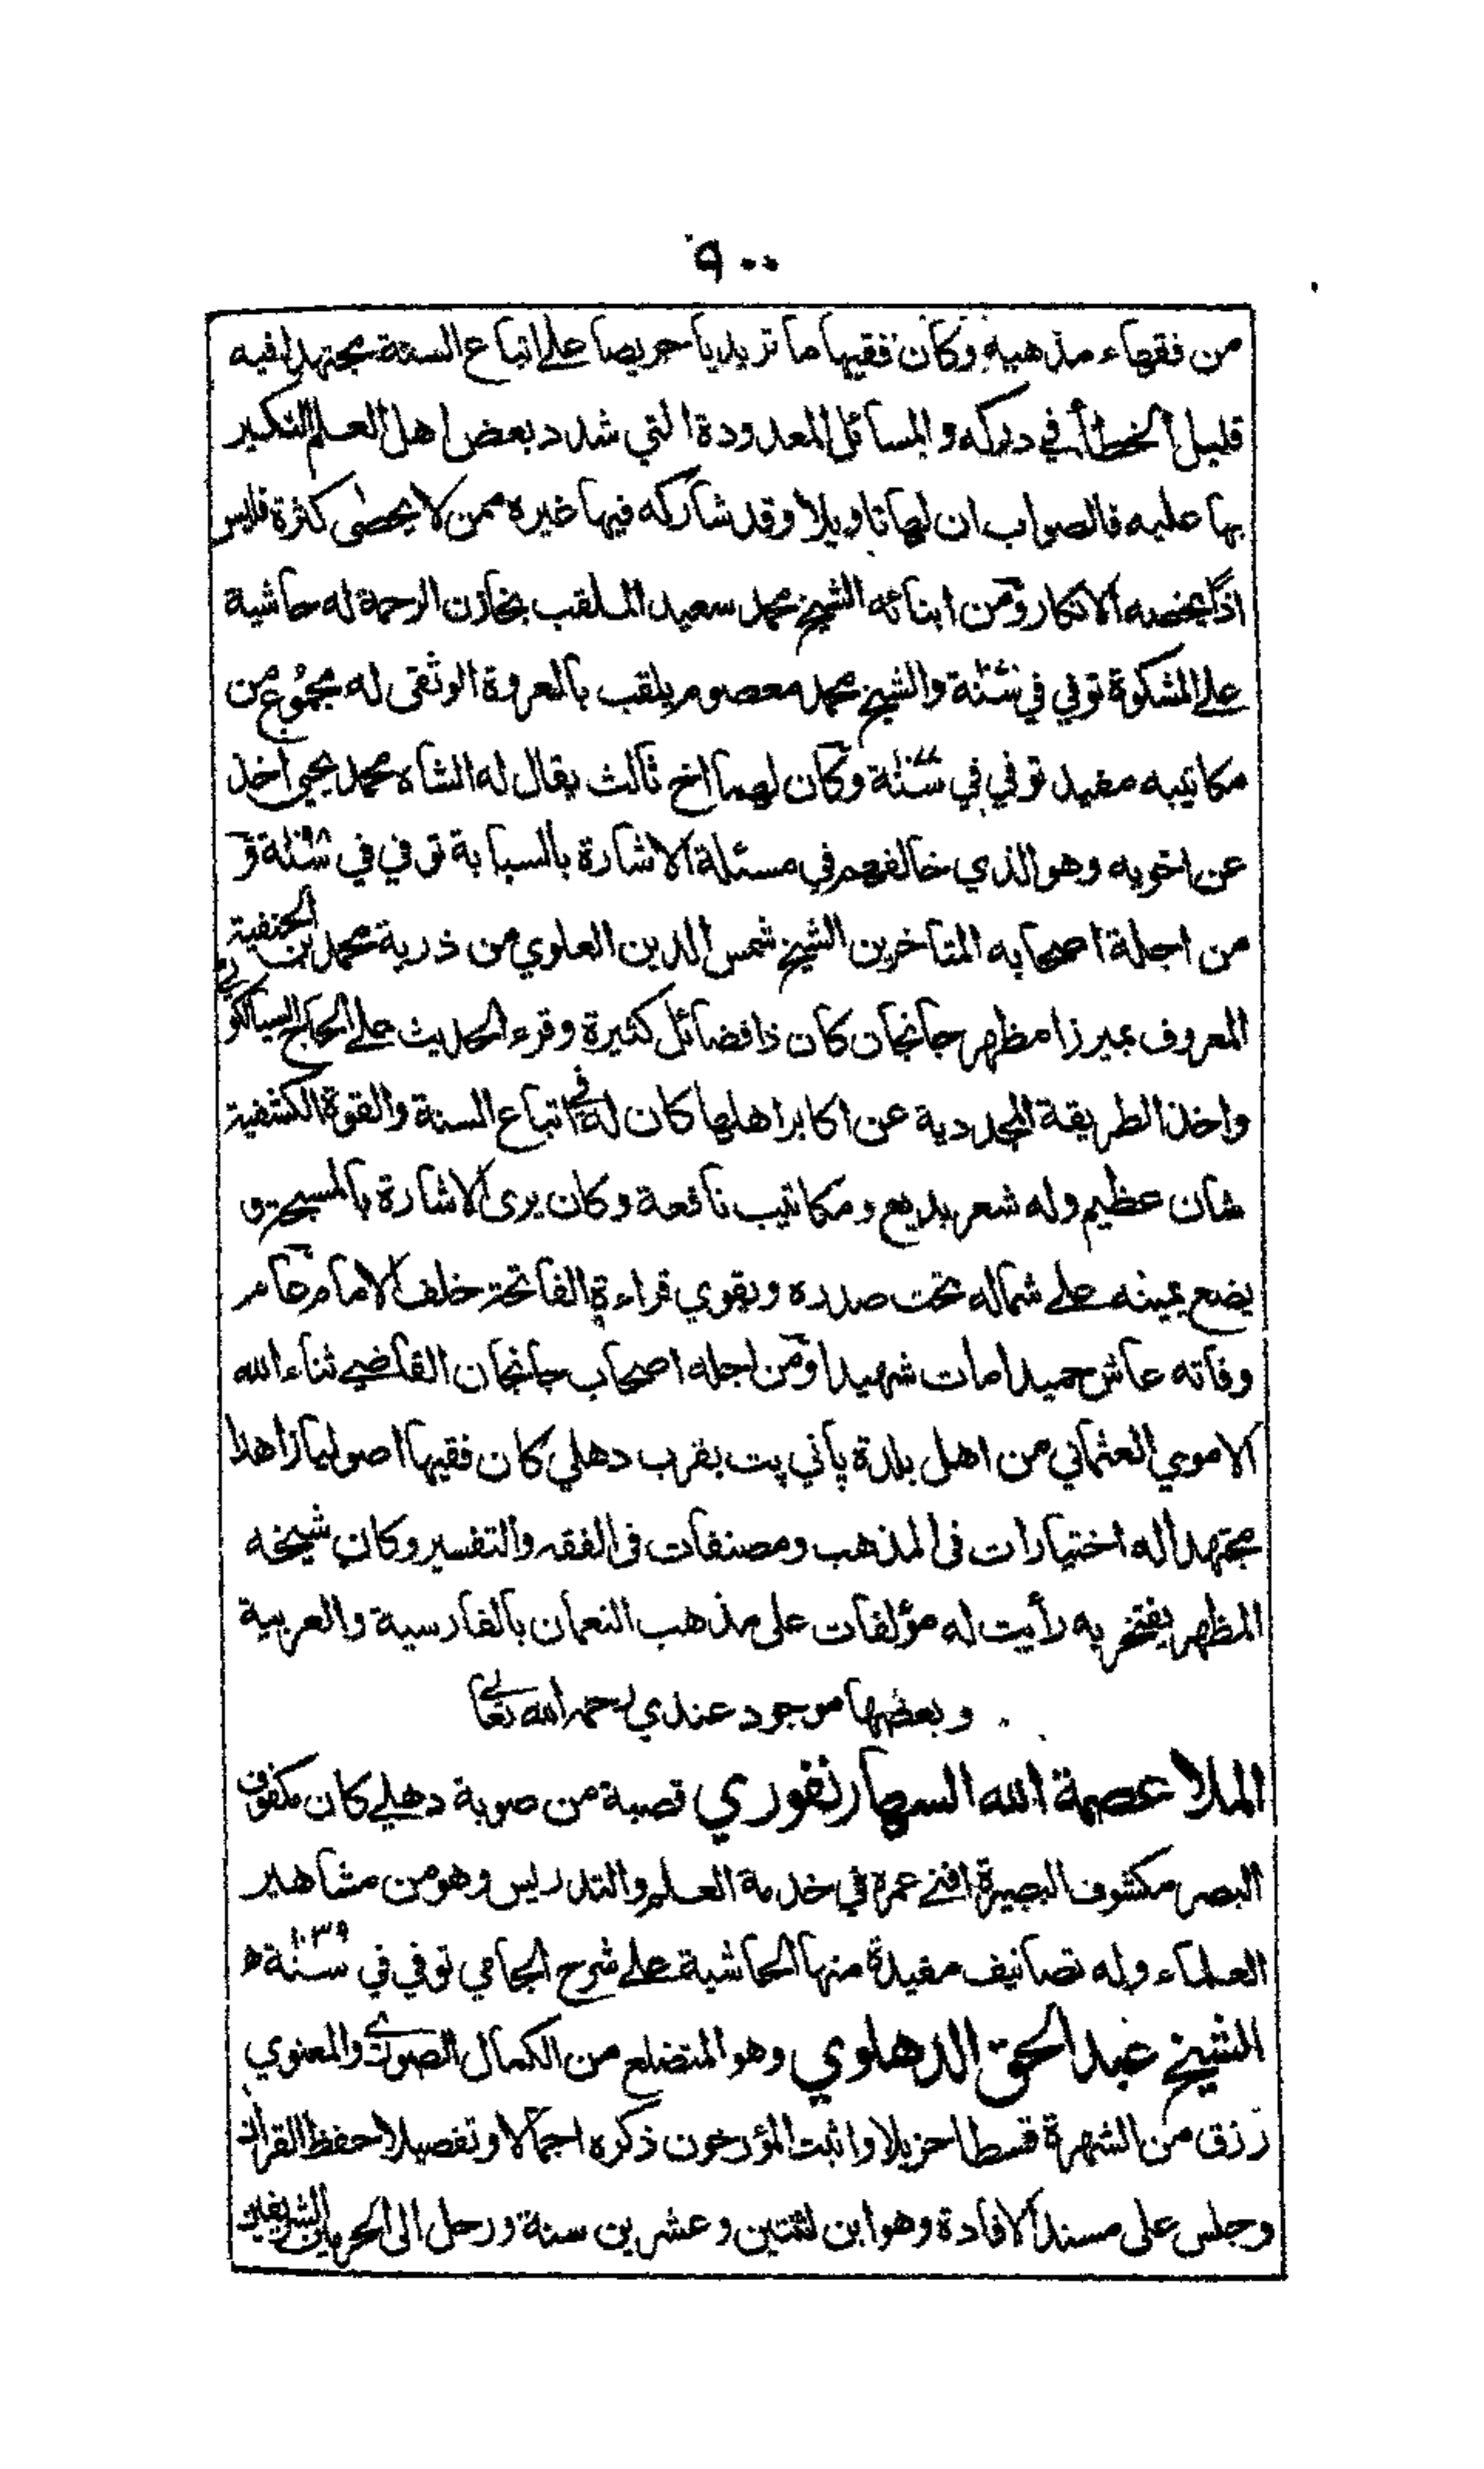 ٩٠٠
من فقهاء مذهبه وكان فقيها ماتريديا حريصا على اتباع السنة مجتهدا فيه
قليل الخطأ في دركه والمسائل المعدودة التي شدد بعض اهل العلم النكير
بها عليه فالصواب ان لها تاويلا وقد شاركه فيها غيره ممن لا يحصى كثرة فليس
اذا يخصه الانكار ومن ابنائه الشيخ محمد سعيد الملقب بخازن الرحمة له حاشية
على المشكوة توفي في والشيخ محمد معصوم يلقب بالعروة الوثقى له مجموع من
مكاتيبه مفيد توفي في وكان لهما اخ ثالث يقال له الشاه محمد يحيى اخذ
عن اخويه وهو الذي خالفهم في مسئلة الاشارة بالسبابة توفي في و
من اجلة اصحابه المتاخرين الشيخ شمس الدين العلوي من ذرية محمد بن الحنفية
المعروف بميرزا مظهر جانجان كان ذا فضائل كثيرة وقرء الحديث على الحاج السيالكوتي
واخذ الطريقة المجددية عن اكابر اهلها كان له في اتباع السنة والقوة الكشفية
شان عظيم وله شعر بديع ومكاتيب نافعة وكان يرى الاشارة بالمسبحة و
يضع يمينه على شماله تحت صدره ويقوي قراءة الفاتحة خلف الامام عام
وفاته عاش حميدا مات شهيدا ومن اجله اصحاب جانجان القاضي ثناء الله
الاموي العثماني من اهل بلدة پاني پت بقرب دهلي كان فقيها اصوليا زاهدا
مجتهدا له اختيارات فى المذهب ومصنفات فى الفقه والتفسير وكان شيخه
المظهر يفتخر به رأيت له مؤلفات على مذهب النعمان بالفارسية والعربية
وبعضها موجود عندي رحمه الله تعالى
الملا عصمة الله السهارنفوري قصبة من صوبة دهلي كان مكفوف
البصر مكشوف البصيرة افنى عمره في خدمة العلم والتدريس وهو من مشاهير
العلماء وله تصانيف مفيدة منها الحاشية على شرح الجامي توفي في سنة ١٠٣٩ ه
الشيخ عبد الحق الدهلوي وهو المتضلع من الكمال الصوري والمعنوي
رزق من الشهرة قسطا جزيلا واثبت المؤرخون ذكره اجمالا وتفصيلا حفظ القران
وجلس على مسند الافادة وهو ابن اثنتين وعشرين سنة ورحل الى الحرمين الشريفين